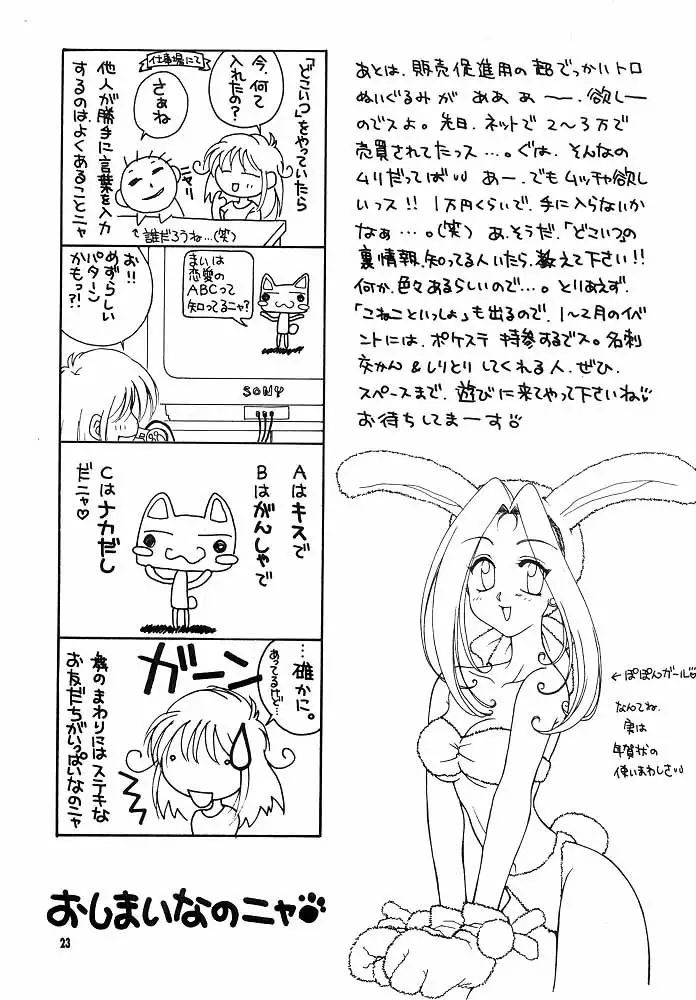 あとは、販売促進用の超でっかいトロ
ぬいぐるみが ああ ぁ ー、欲しー
のでスよ。先日、ネットで 2〜3万で
売買されてたっス…。ぐは、そんなの
ムリだってばい あー、でもムッチャ欲し
いっス!! 1万円くらいで、手に入らないか
なぁ…。(笑) あ、そうだ、「どこいつ」の
裏情報、知ってる人いたら、教えて下さい!!
何か、色々あるらしいので…。とりあえず、
「こねこといっしょ」も出るので、1〜2月のイベ
ントには、ポケステ 持参するでス。名刺
交かん & しりとり してくれる人、ぜひ
スペースまで、遊びに来てやって下さいね
お待ちしてまーす
仕事場にて
「どこいつ」をやっていたら
今、何て
入れたの?
さぁね
ニヤリ
他人が勝手に言葉を入力
するのはよくあることニャ
誰だろうね…(笑)
まいは
恋愛の
ABCって
知ってるニャ?
お!!
めずらしい
パターン
かもっ?!
SONY
Aはキスで
Bはがんしゃで
Cはナカだし
だニャ♡
…確かに。
あってるけど…
ガーン
僕のまわりにはステキな
お友だちがいっぱいなのニャ
←ぽぽんガール♡
なんてね、
実は
年賀状の
使いまわしさ
おしまいなのニャ
23